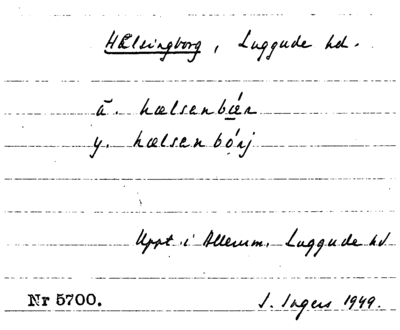 Hälsingborg, Luggude hd.
ä. hælsenbǽr
y. hælsenbórj
Uppt. i Allerum. Luggude hd
Nr 5700.
I. Ingers 1949.